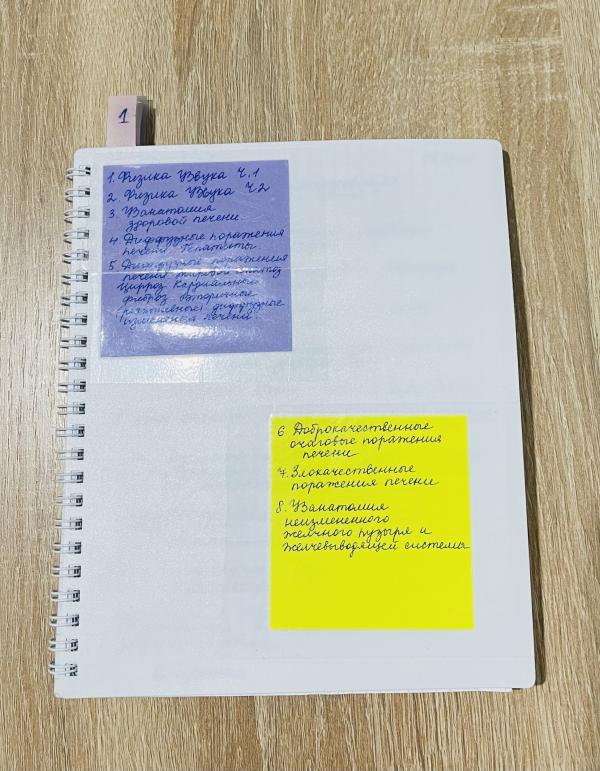 1
1. Физика УЗвука Ч.1
2. Физика УЗвука Ч2
3. УЗанатомия
здоровой печени.
4. Диффузные поражения
печени. Гепатиты.
5. Диффузные поражения
печени жировой гепатоз
Цирроз Кардиальный
фиброз Вторичные
(реактивные) диффузные
изменения печени.
6. Доброкачественные
очаговые поражения
печени
7. Злокачественные
поражения печени
8. УЗанатомия
неизмененного
желчного пузыря и
желчевыводящей системы